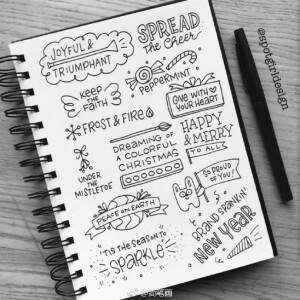 JOYFUL &
TRIUMPHANT
SPREAD
the CHEER
KEEP
the
FAITH
PEPPERMINT
GIVE WITH
YOUR HEART
FROST & FIRE
DREAMING OF
A COLORFUL
CHRISTMAS
HAPPY
& MERRY
TO ALL
UNDER
THE
MISTLETOE
SO PROUD
OF YOU!
PEACE ON EARTH
'TIS THE SEASON TO
SPARKLE
BRAND SPANKIN'
NEW YEAR
@spotgirldesign